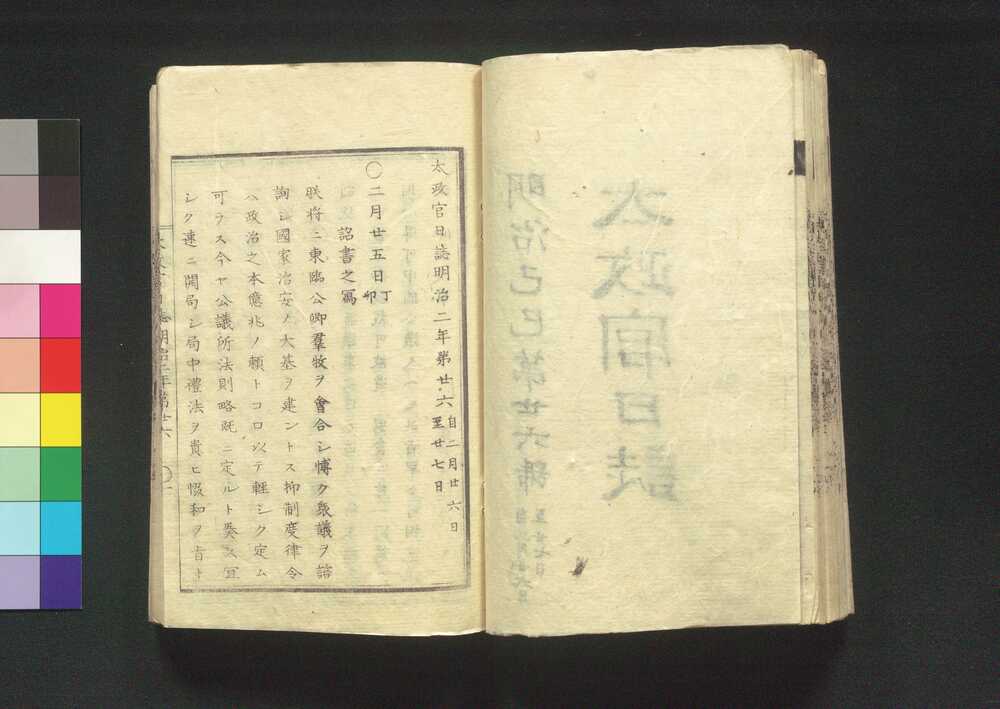 太政官日誌
明治己巳第廿六號
太政官日誌明治二年第廿六 自二月廿六日 至廿七日
〇二月廿五日丁卯
詔書之寫
朕将ニ東臨公卿羣牧ヲ會合シ博ク衆議ヲ諮
詢シ國家治安ノ大基ヲ建ントス抑制度律令
ハ政治之本億兆ノ頼トコロ以テ輕シク定ム
可ラス今ヤ公議所法則略既ニ定ルト奏ス宜
シク速ニ開局シ局中禮法ヲ貴ヒ協和ヲ旨ト